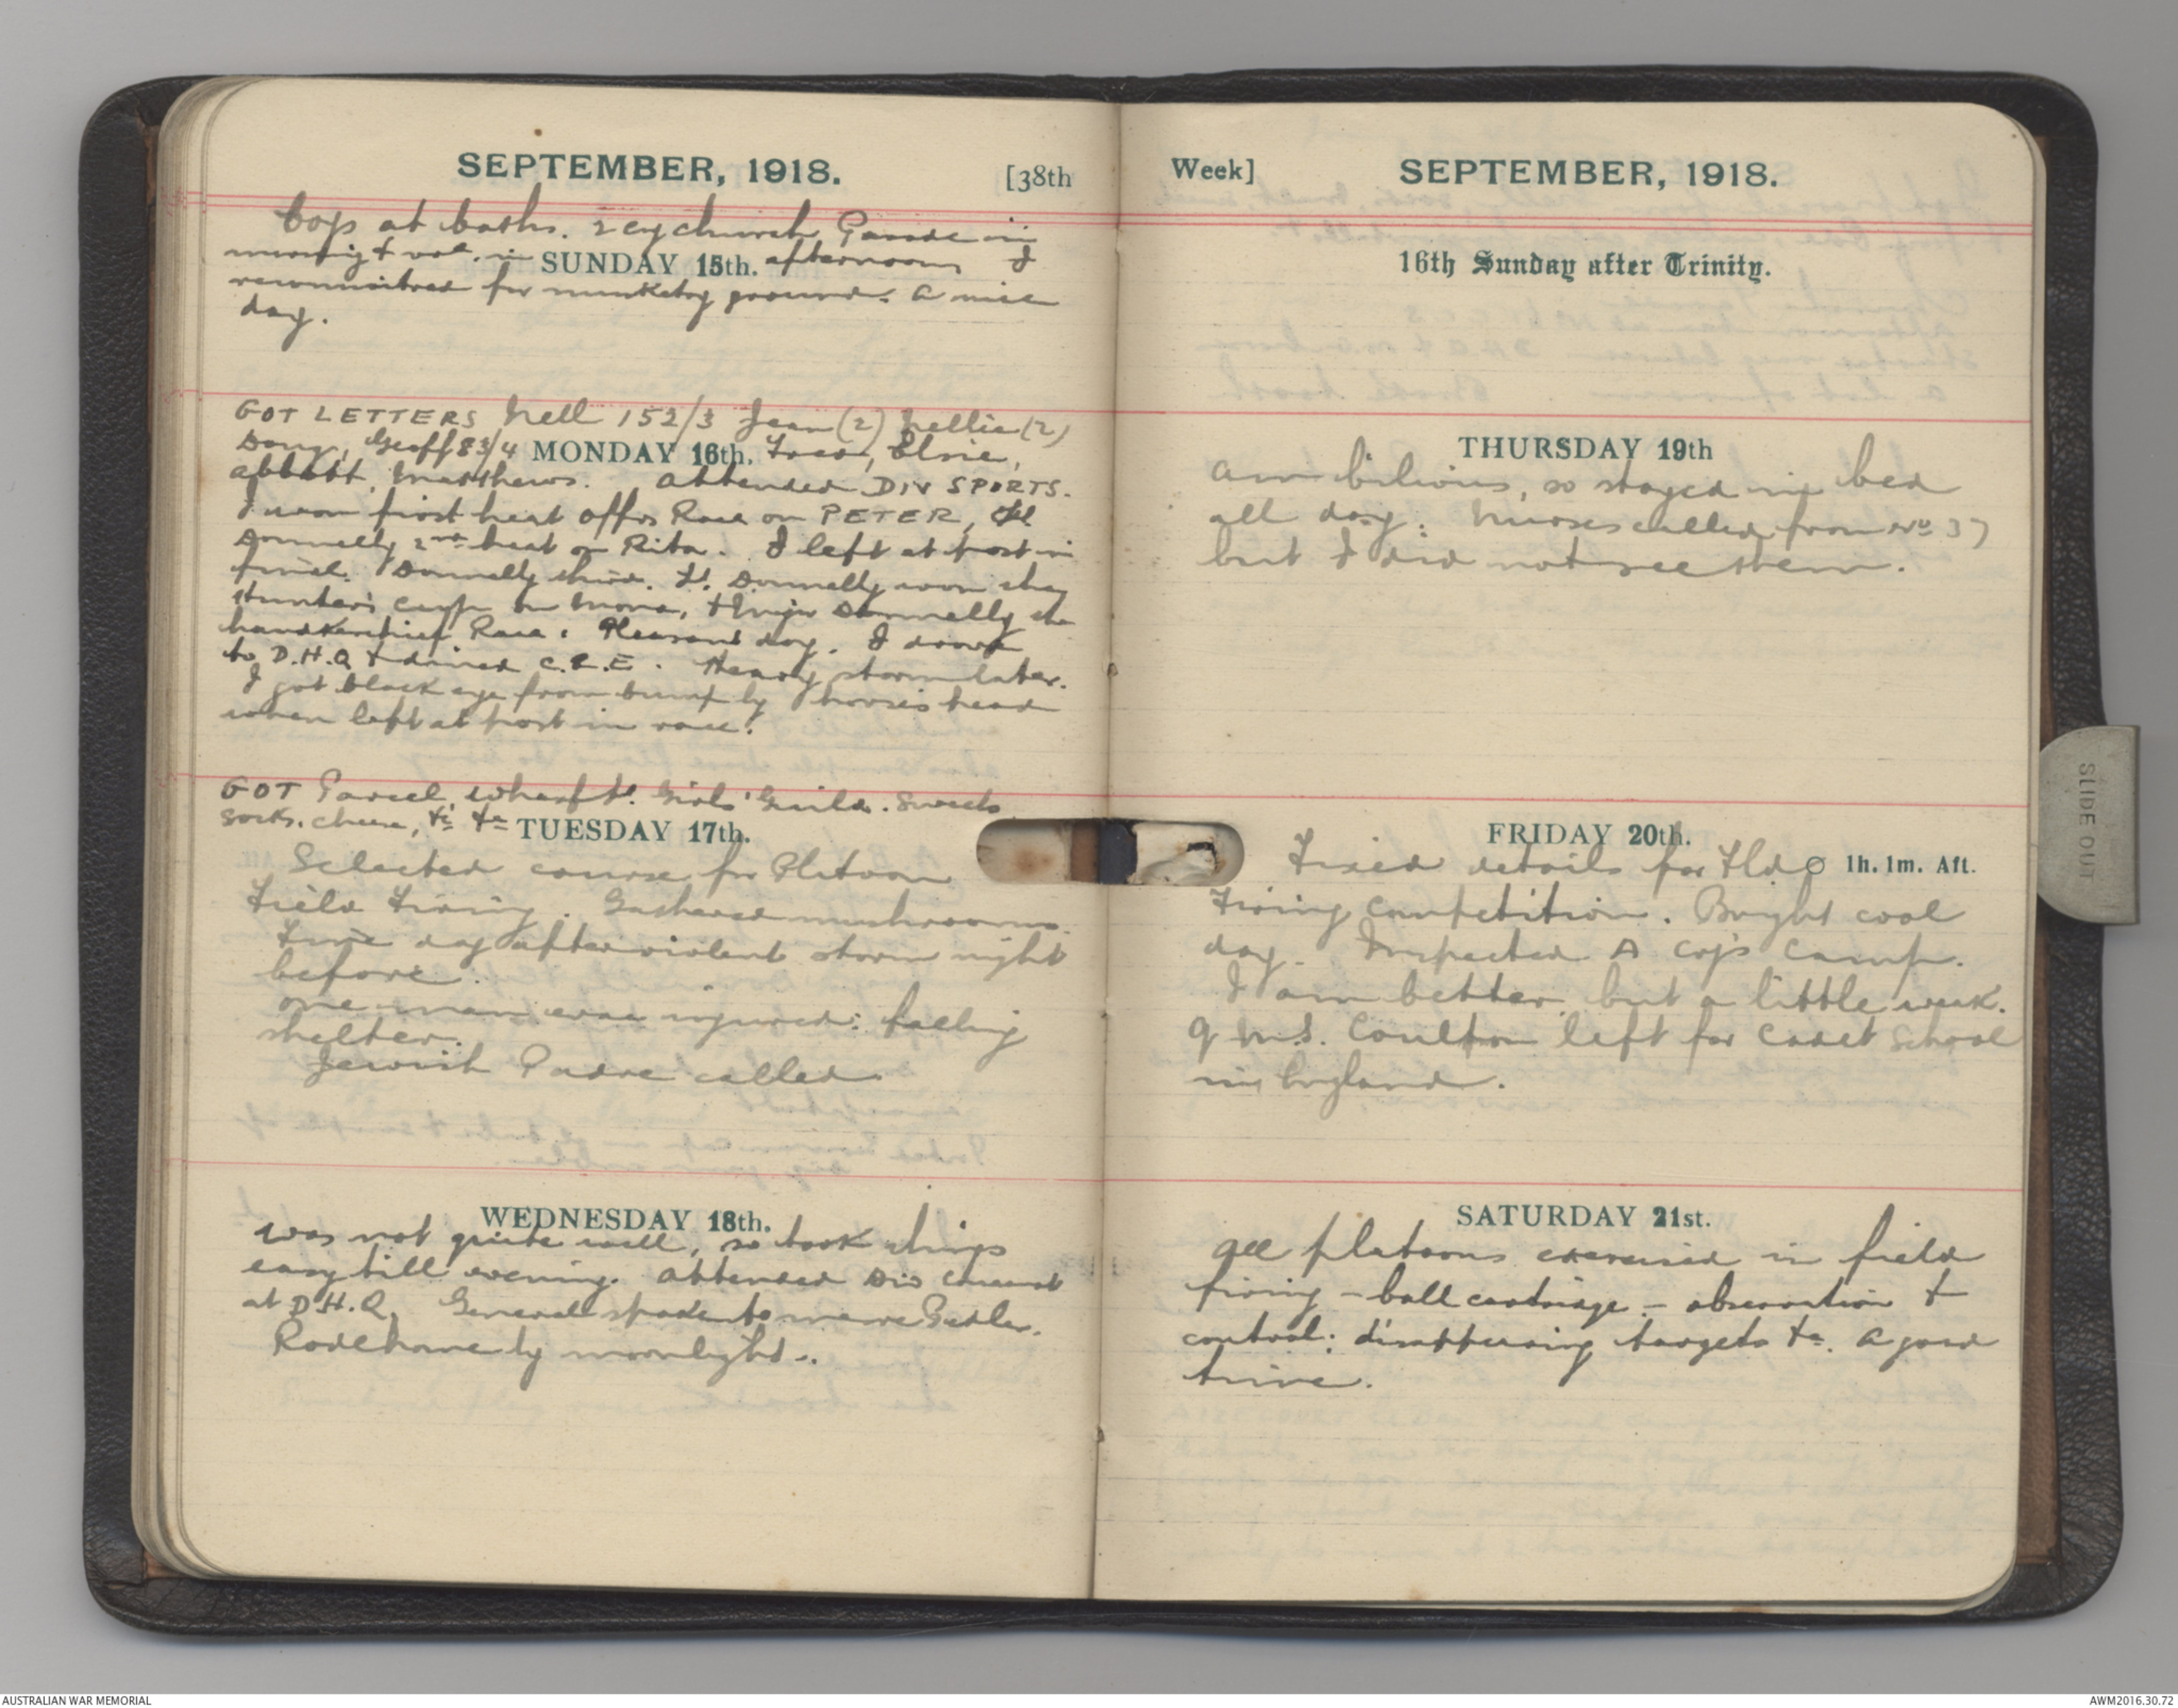 SEPTEMBER, 1918. [38th
Coys at baths. Church Parade in
morning & vol. in SUNDAY 15th. afternoon I
reconnoitred for musketry ground. A nice
day.
GOT LETTERS Nell 152/3 Jean (2) Nellie (2)
Doug, Geoff 83/4 MONDAY 16th. Elsie,
Abbott, Matthews. Attended DIV SPORTS.
I won first heat offrs Race on PETER,
Donnelly 2nd heat on Rita. I left at post in
final. Donnelly third. Lt. Donnelly won the
Hunters cup on Mona, & Donnelly the
handkerchief Race. Pleasant day. I drove
to D.H.Q & dined C.R.E. Heavy storm later.
I got black eye from bump by horse's head
when left at post in race!
GOT Parcel Girls' Guild. Sweets
Socks. cheese, &c &c TUESDAY 17th.
Selected course for Platoon
Field Firing. Gathered mushrooms.
Fine day after violent storm night
before.
One man was injured: falling
shelter.
Jewish Padre called
WEDNESDAY 18th.
was not quite well, so took things
easy till evening. Attended Div Concert
at D.H.Q. General spoke to me re
Rode home by moonlight..
Week] SEPTEMBER, 1918.
16th Sunday after Trinity.
THURSDAY 19th
Am bilious, so stayed in bed
all day: Nurses called from No 37
but I did not see them.
FRIDAY 20th.
Fixed details for Fld 1h. 1m. Aft.
Firing Competition. Bright cool
day. Inspected A Coy's Camp.
I am better, but a little weak.
Q.M.S. Coulton left for Cadet School
in England.
SATURDAY 21st.
All platoons exercised in field
firing - ball cartridge - observation &
control: disappearing targets &c. A good
time.
SLIDE OUT
AUSTRALIAN WAR MEMORIAL AWM2016.30.72